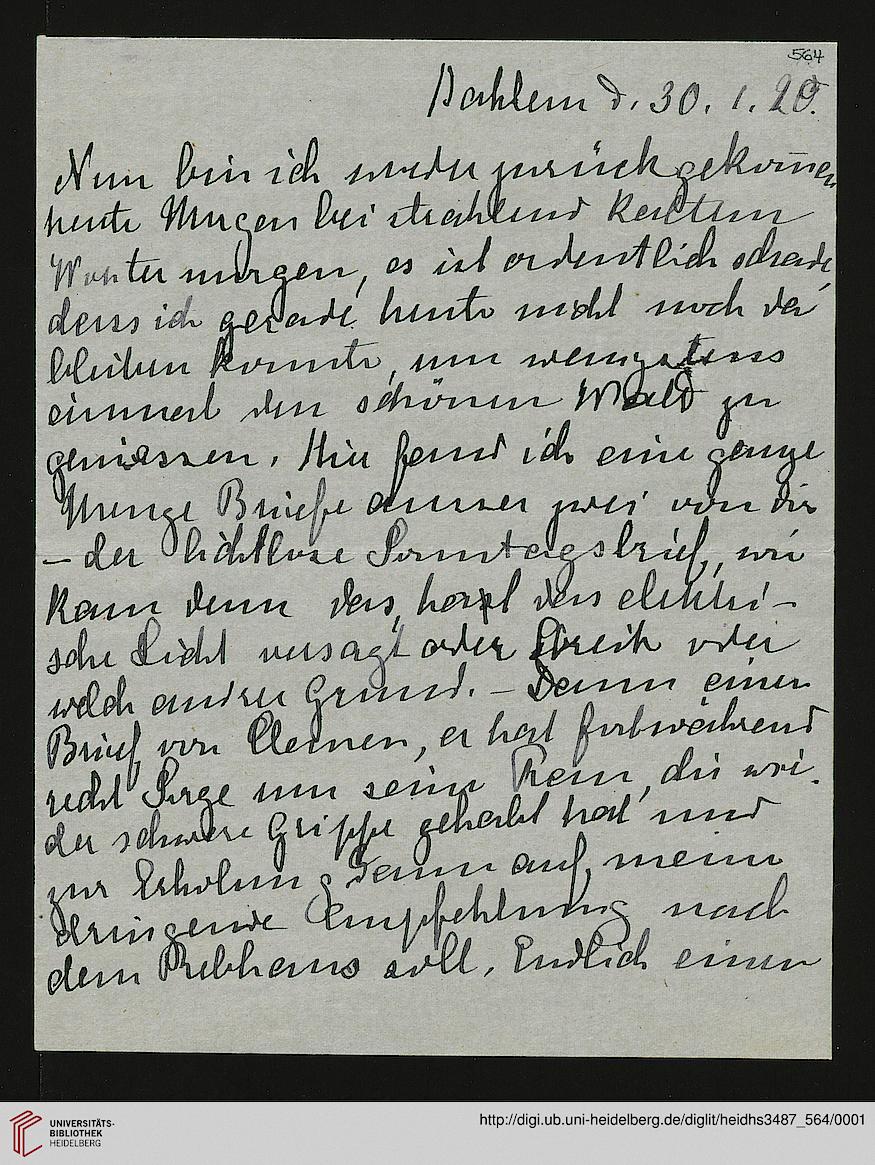 564
Dahlem d. 30. 1. 20.
Nun bin ich wieder zurückgekom̅en
heute Morgen bei strahlend kaltem
Wintermorgen, es ist ordentlich schade,
dass ich gerade heute nicht noch da
bleiben konnte, um wenigstens
einmal den schönen Wald zu
geniessen. Hier fand ich eine ganze
Menge Briefe ausser zwei von dir
– der lichtlose Sonntagsbrief, wie
kam denn das, hat das elektri-
sche Licht versagt oder Streik oder
welch andrer Grund. – Dann einen
Brief von Clemen, er hat fortwährend
recht Sorge um seine Frau, die wie-
der schwere Grippe gehabt hat und
zur Erholung dann auf meine
dringende Empfehlung nach
dem Rebhaus soll. Endlich einen
UNIVERSITÄTS-
BIBLIOTHEK
HEIDELBERG
http://digi.ub.uni-heidelberg.de/diglit/heidhs3487_564/0001